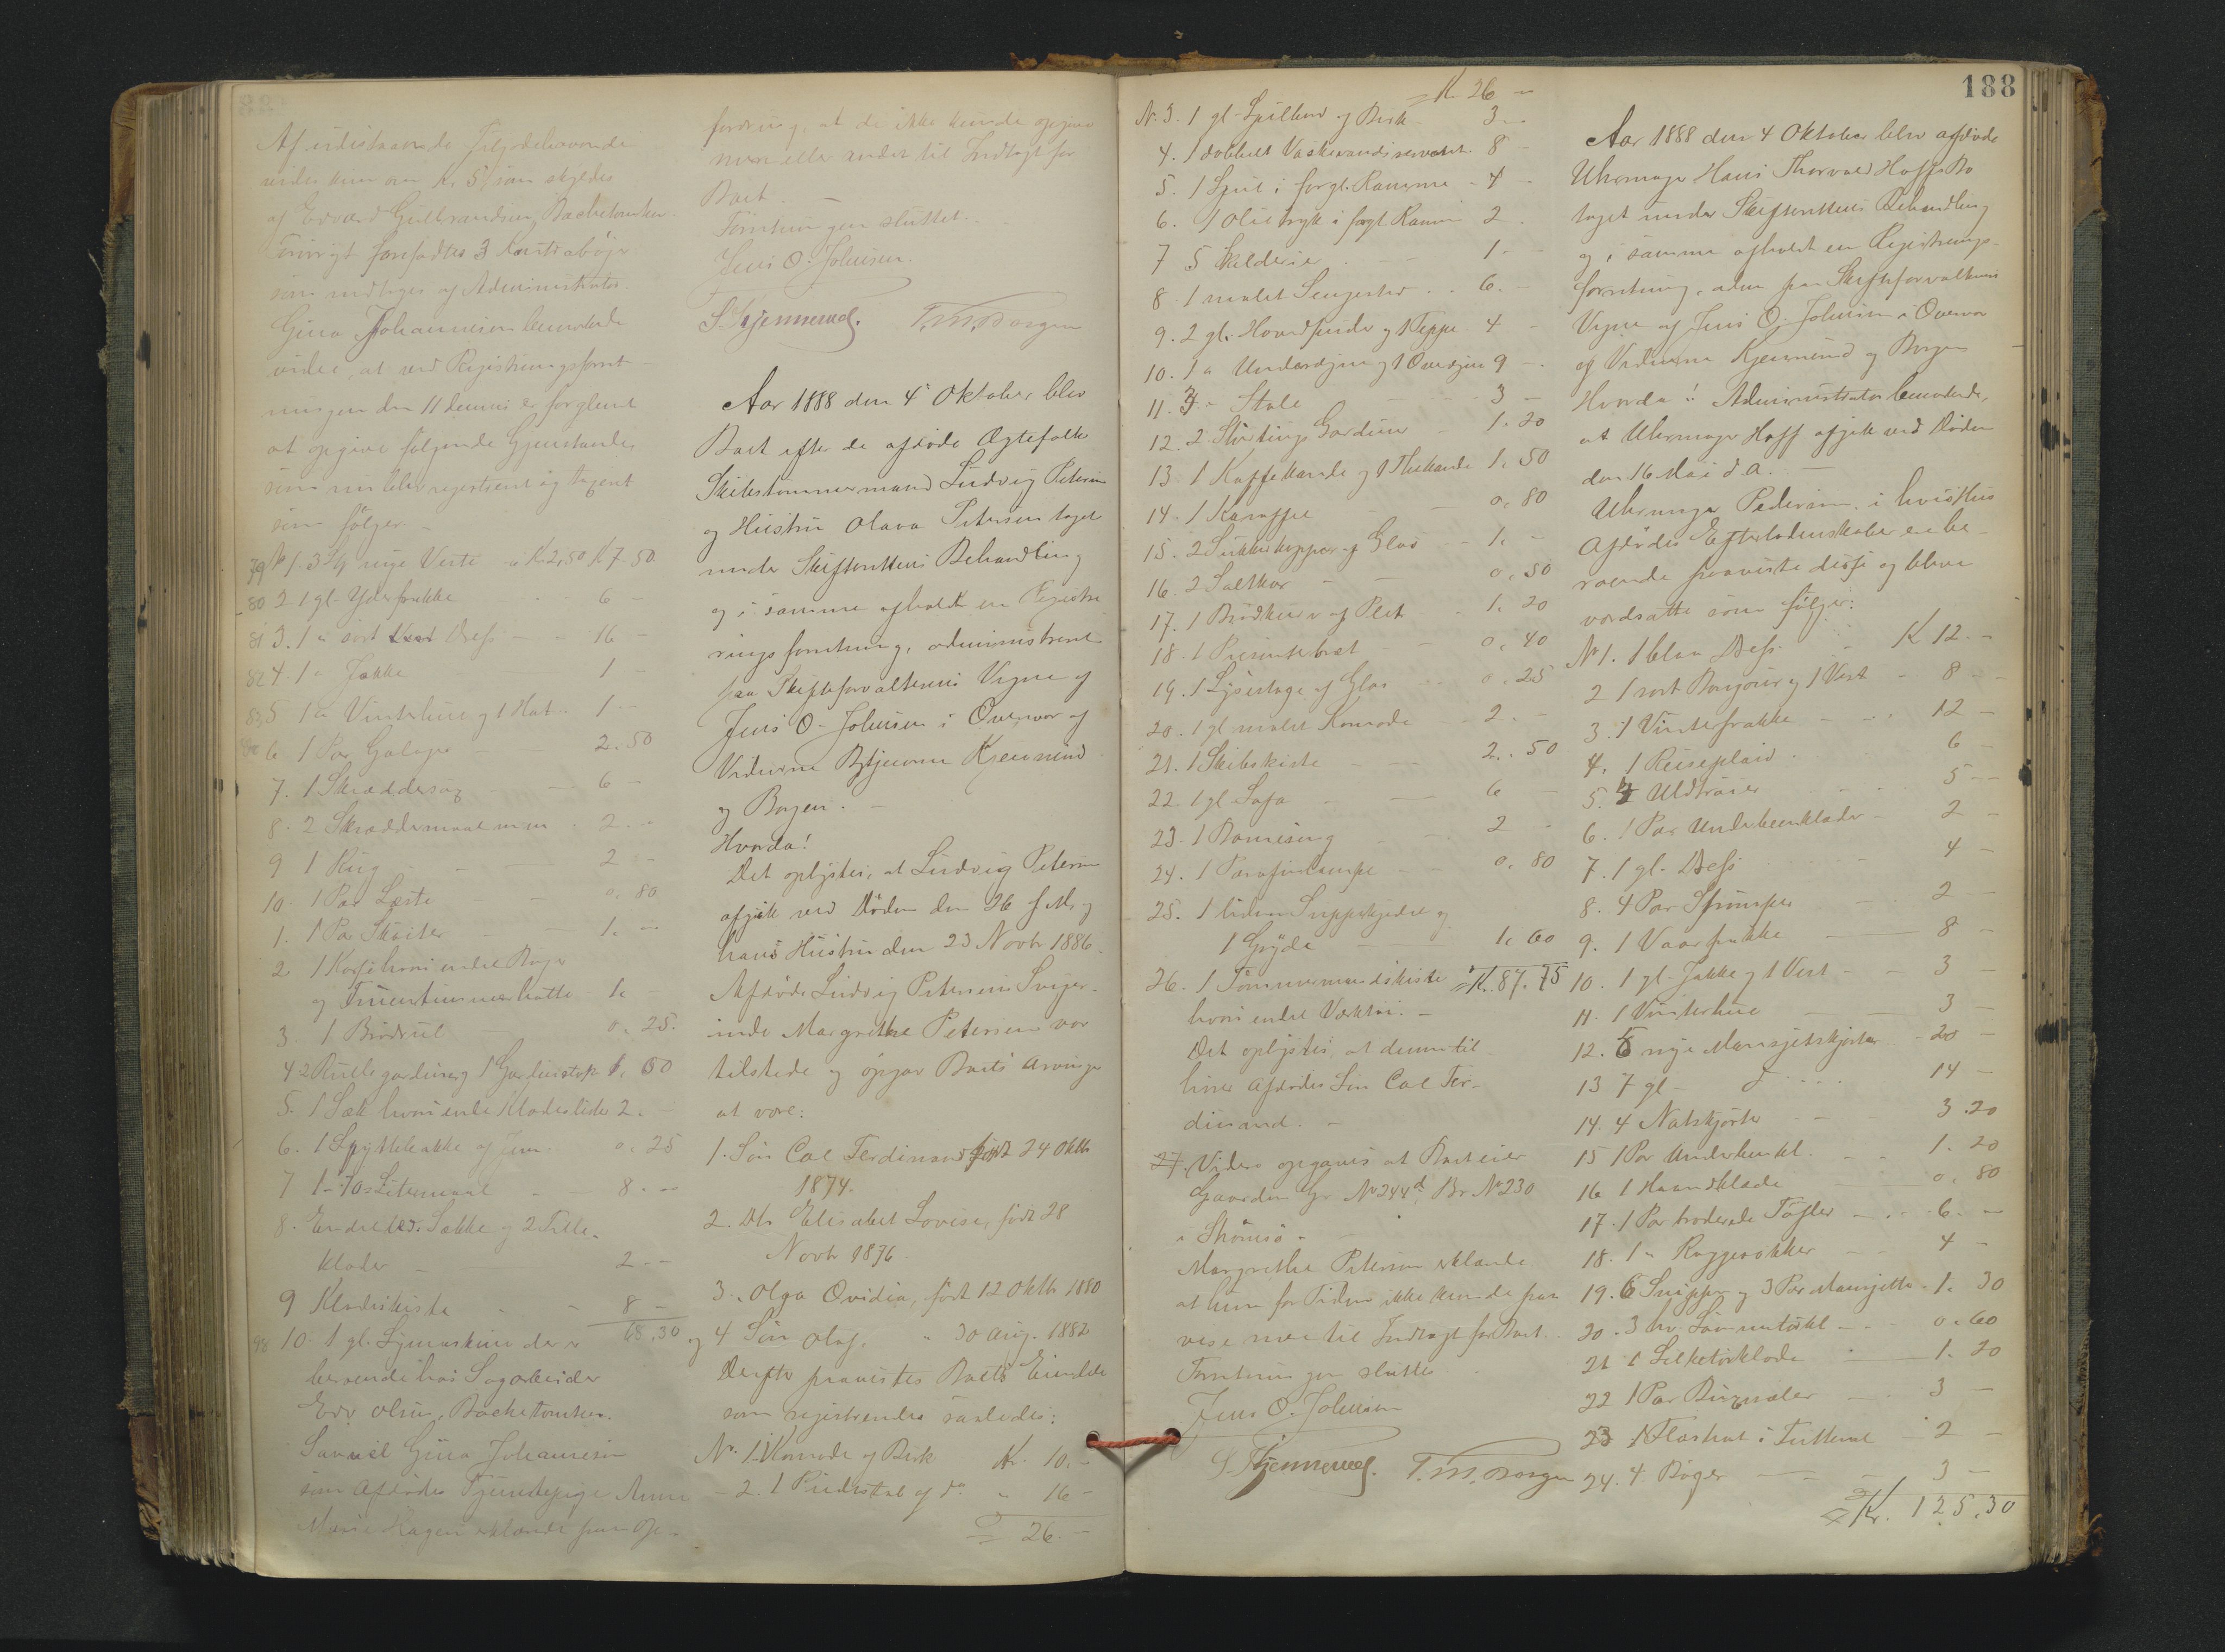 Af udestaaende Tilgodehavende
vides kun om Kr. 5, som skyldes
af Edvard Gulbrandsen, Backetomten.
Forøvrigt forefandtes 3 Kontrabøger
som modtages af Administrator.
Gina Johannesen bemærkede
videre, at ved Registreringsforret-
ningen den 11 dennes er forglemt
at opgive følgende Gjenstande,
som nu blev registreret og taxeret
som følger. –
79 No 1. 3 Stk nye Veste a K 2,50 K 7. 50
80 2 1 gl. Yderfrakke 6 –
81 3. 1 " sort Dress 16 –
82 4. 1 " Jakke 1 –
83 5 1 " Vinterhue og 1 Hat 1 –
6 1 Par Galoger 2. 50
7. 1 Skræddersax 6 –
8. 2 Skræddermaal 2. –
9 1 Rug 2 –
10. 1 Par Læste 0. 80
1. 1 Par Skøiter 1. –
2 1 Kasse hvori endel Bøger
og Fruentimmerhatte 1. –
3. 1 Brødrul 0. 25.
4 2 Rullegardiner og 1 Gardinstok 1. 50
5. 1 Sæk hvori endel Klædesfiller 2. –
6. 1 Spyttebakke af Jern 0. 25
7 1 – 70 Litermaal 8. –
8. Endel Sække og 2 Fille-
klæder – 2 –
9 Klædeskiste 8 –
68,30
98 10. 1 gl. Symaskine der er
beroende hos Sagarbeider
Edv Olsen, Backetomten.
Samuel Gina Johannesen
som Afdødes Tjenestepige Anna
Marie Hagen erklærede paa Op-
fordring, at de ikke kunde opgive
mere eller andet til Indtægt for
Boet. –
Forretningen sluttet. –
Jens O. Johnsen.
S. Kjennerud. T. M. Borgen
Aar 1888 den 4de Oktober, blev
Boet efter de afdøde Ægtefolk
Skibstømmermand Ludvig Petersen
og Hustru Olava Petersen taget
under Skifterettens Behandling
og i samme afholdt en Registre
rings forretning, administreret
paa Skifteforvalterens Vegne af
Jens O. Johnsen i Overvær af
Vidnerne Kjennerud
og Borgen. –
Hvorda!
Det oplystes, at Ludvig Petersen
afgik ved Døden den 26 f. M. og
hans Hustru den 23 Novbr 1886.
Afdøde Ludvig Petersens Sviger-
inde Margrethe Petersen var
tilstede og opgav Boets Arvinger
at være:
1. Søn Carl Ferdinand født 24 Oktbr
1874.
2. Dtr Elisabet Lovise, født 28
Novbr 1876
3. " Olga Ovidia, født 12 Oktbr 1880
og 4 Søn Olaf, " 30 Aug. 1882
Derefter paavistes Boets Eiendele
som registreredes saaledes:
No. 1. 1 Komode af Birk Kr. 10. –
– 2. 1 Pidestal af do " 16 –
26. –
K 26 –
No. 3. 1 gl. Spillbord af Birk 3 –
4. 1 dobbelt Vaskevandsservant 8 –
5. 1 Speil i forgl. Ramme – 4 –
6. 1 Olietryk i forgl. Ramme 2 .
7 5 Skilderier 1 –
8. 1 malet Sengested 6. –
9. 2 gl. Hovedpuder og 1 Teppe 4 –
10. 1 " Underdyne og 1 Overdyne 9 –
11. 3 " Stole 3 –
12. 2 Shirtings Gardiner 1. 20
13. 1 Kaffekande og 1 Thekande 1. 50
14. 1 Karaffel 0. 80
15. 2 Sukkerkopper af Glas 1. –
16. 2 Saltkar 0. 50
17. 1 Brødkurv af Plet 1. 20
18. 1 Presenterbræt 0. 40
19. 1 Lysestage af Glas 0. 25
20. 1 gl malet Komode 2. –
21. 1 Skibskiste 2. 50
22. 1 gl. Sofa 6 –
23. 1 Barneseng 2 –
24. 1 Parafinlampe 0. 80
25. 1 liden Suppekjedel og
1 Gryde 1. 60
26. 1 Tømmermandskiste Kr. 87. 75
hvori endel Værktøi. –
Det oplystes, at denne til
hører Afdødes Søn Carl Fer-
dinand. –
27. Videre opgaves at Boet eier
Gaarden Gr No 244d, Br No 230
i Strømsø. –
Margrethe Petersen erklærede
at hun for Tiden ikke kunde paa
vise mere til Indtægt for Boet.
Forretningen sluttet
Jens O. Johnsen
S. Kjennerud. T. M. Borgen
188
Aar 1888 den 4 Oktober blev afdøde
Uhrmager Hans Thorvald Hoffs Bo
taget under Skifterettens Behandling
og i samme afholdt en Registrerings-
forretning, adm. paa Skifteforvalterens
Vegne af Jens O. Johnsen i Overvær
af Vidnerne Kjennerud og Borgen
Hvorda!! Administrator bemærkede,
at Uhrmager Hoff afgik ved Døden
den 16 Mai d. A. –
Uhrmager Pedersen, i hvis Hus
Afdødes Efterladenskaber er be-
roende paaviste disse og bleve
værdsatte som følger:
No 1. 1 blaa Dress K 12. –
2 1 sort Bonjour og 1 Vest 8 –
3. 1 Vinterfrakke 12 –
4. 1 Reiseplaid 6 –
5. 4 Uldtrøier 5 –
6. 1 Par Underbenklæder 2 –
7. 1 gl. Dress 4 –
8. 4 Par Strømper 2 –
9. 1 Vaarfrakke 8 –
10. 1 gl. Jakke og 1 Vest 3 –
11. 1 Vinterhue 3 –
12. 5 nye Mansjetskjorter 20 –
13 7 gl – d 14 –
14. 4 Natskjorter 3. 20
15 1 Par Underbenkl. 1. 20
16 1 Haandklæde 0. 80
17. 1 Par broderede Tøfler 6. –
18. 1 " Raggesokker 4 –
19. 6 Snipper og 3 Par Mansjetter 1. 30
20. 3 hv. Lommetørkl 0. 60
21 1 Silketørklæde 1. 20
22 1 Par Buxesæler 3 –
23 1 Floshat i Futteral 2 –
24. 4 Bøger 3 –
Kr. 125.30